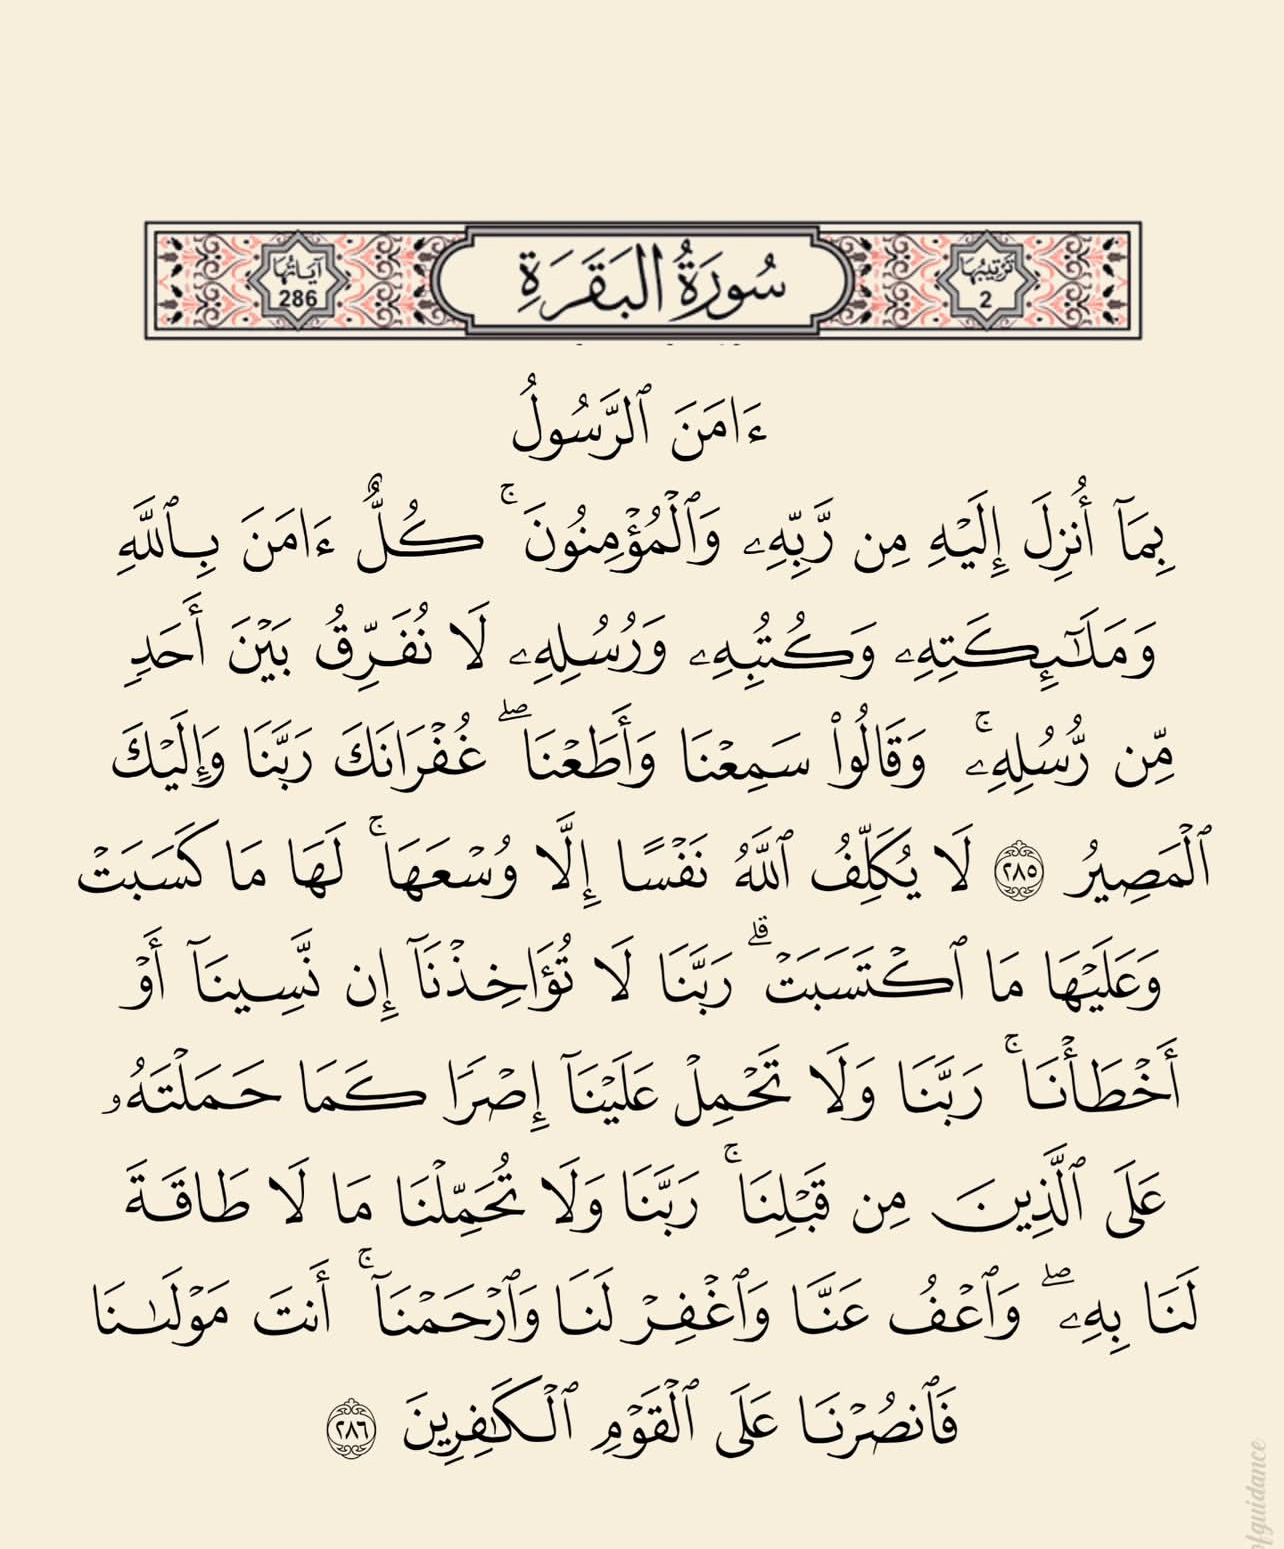 ترتيبها
2
سُورَةُ البَقَرَةِ
آياتها
286
ءَامَنَ ٱلرَّسُولُ
بِمَآ أُنزِلَ إِلَيْهِ مِن رَّبِّهِۦ وَٱلْمُؤْمِنُونَ ۚ كُلٌّ ءَامَنَ بِٱللَّهِ
وَمَلَـٰٓئِكَتِهِۦ وَكُتُبِهِۦ وَرُسُلِهِۦ لَا نُفَرِّقُ بَيْنَ أَحَدٍ
مِّن رُّسُلِهِۦ ۚ وَقَالُوا۟ سَمِعْنَا وَأَطَعْنَا ۖ غُفْرَانَكَ رَبَّنَا وَإِلَيْكَ
ٱلْمَصِيرُ ٢٨٥ لَا يُكَلِّفُ ٱللَّهُ نَفْسًا إِلَّا وُسْعَهَا ۚ لَهَا مَا كَسَبَتْ
وَعَلَيْهَا مَا ٱكْتَسَبَتْ ۗ رَبَّنَا لَا تُؤَاخِذْنَآ إِن نَّسِينَآ أَوْ
أَخْطَأْنَا ۚ رَبَّنَا وَلَا تَحْمِلْ عَلَيْنَآ إِصْرًا كَمَا حَمَلْتَهُۥ
عَلَى ٱلَّذِينَ مِن قَبْلِنَا ۚ رَبَّنَا وَلَا تُحَمِّلْنَا مَا لَا طَاقَةَ
لَنَا بِهِۦ ۖ وَٱعْفُ عَنَّا وَٱغْفِرْ لَنَا وَٱرْحَمْنَآ ۚ أَنتَ مَوْلَىٰنَا
فَٱنصُرْنَا عَلَى ٱلْقَوْمِ ٱلْكَـٰفِرِينَ ٢٨٦
ofguidance